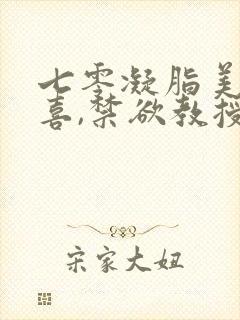 七零凝脂美
喜,禁欲教授
宋家大妞